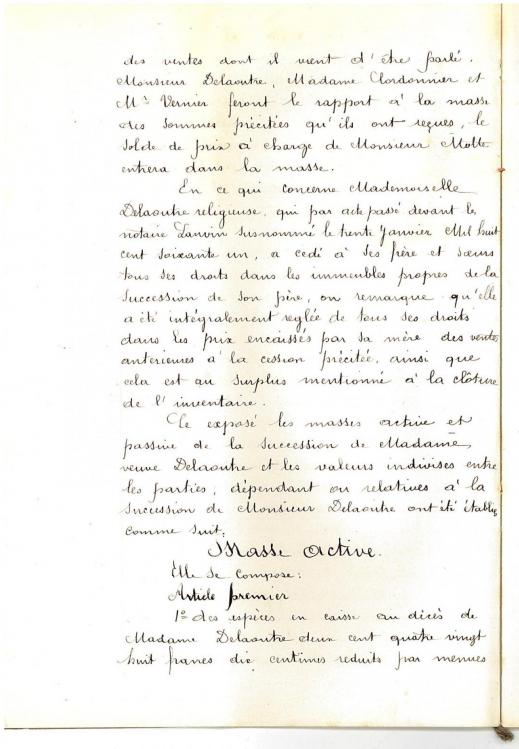 des ventes dont il vient d'être parlé.
Monsieur Delaoutre, Madame Cordonnier et
Mr Vernier feront le rapport à la masse
des sommes précitées qu'ils ont reçues, le
solde de prix à charge de Monsieur Motte
entrera dans la masse.
En ce qui concerne Mademoiselle
Delaoutre religieuse, qui par acte passé devant le
notaire Lanvin susnommé le trente Janvier Mil huit
cent soixante un, a cedé à ses frère et sœurs
tous ses droits dans les immeubles propres de la
succession de son père, on remarque qu'elle
a été intégralement reglée de tous ses droits
dans les prix encaissés par sa mère des ventes
anterieures à la cession précitée, ainsi que
cela est au surplus mentionné à la clôture
de l'inventaire.
Ce exposé les masses active et
passive de la succession de Madame
veuve Delaoutre et les valeurs indivises entre
les parties, dépendant ou relatives à la
succession de Monsieur Delaoutre ont été établies
comme suit:
Masse active.
Elle se compose:
Article premier
1º des espèces en caisse au décès de
Madame Delaoutre deux cent quatre vingt
huit francs dix centimes reduits par menues